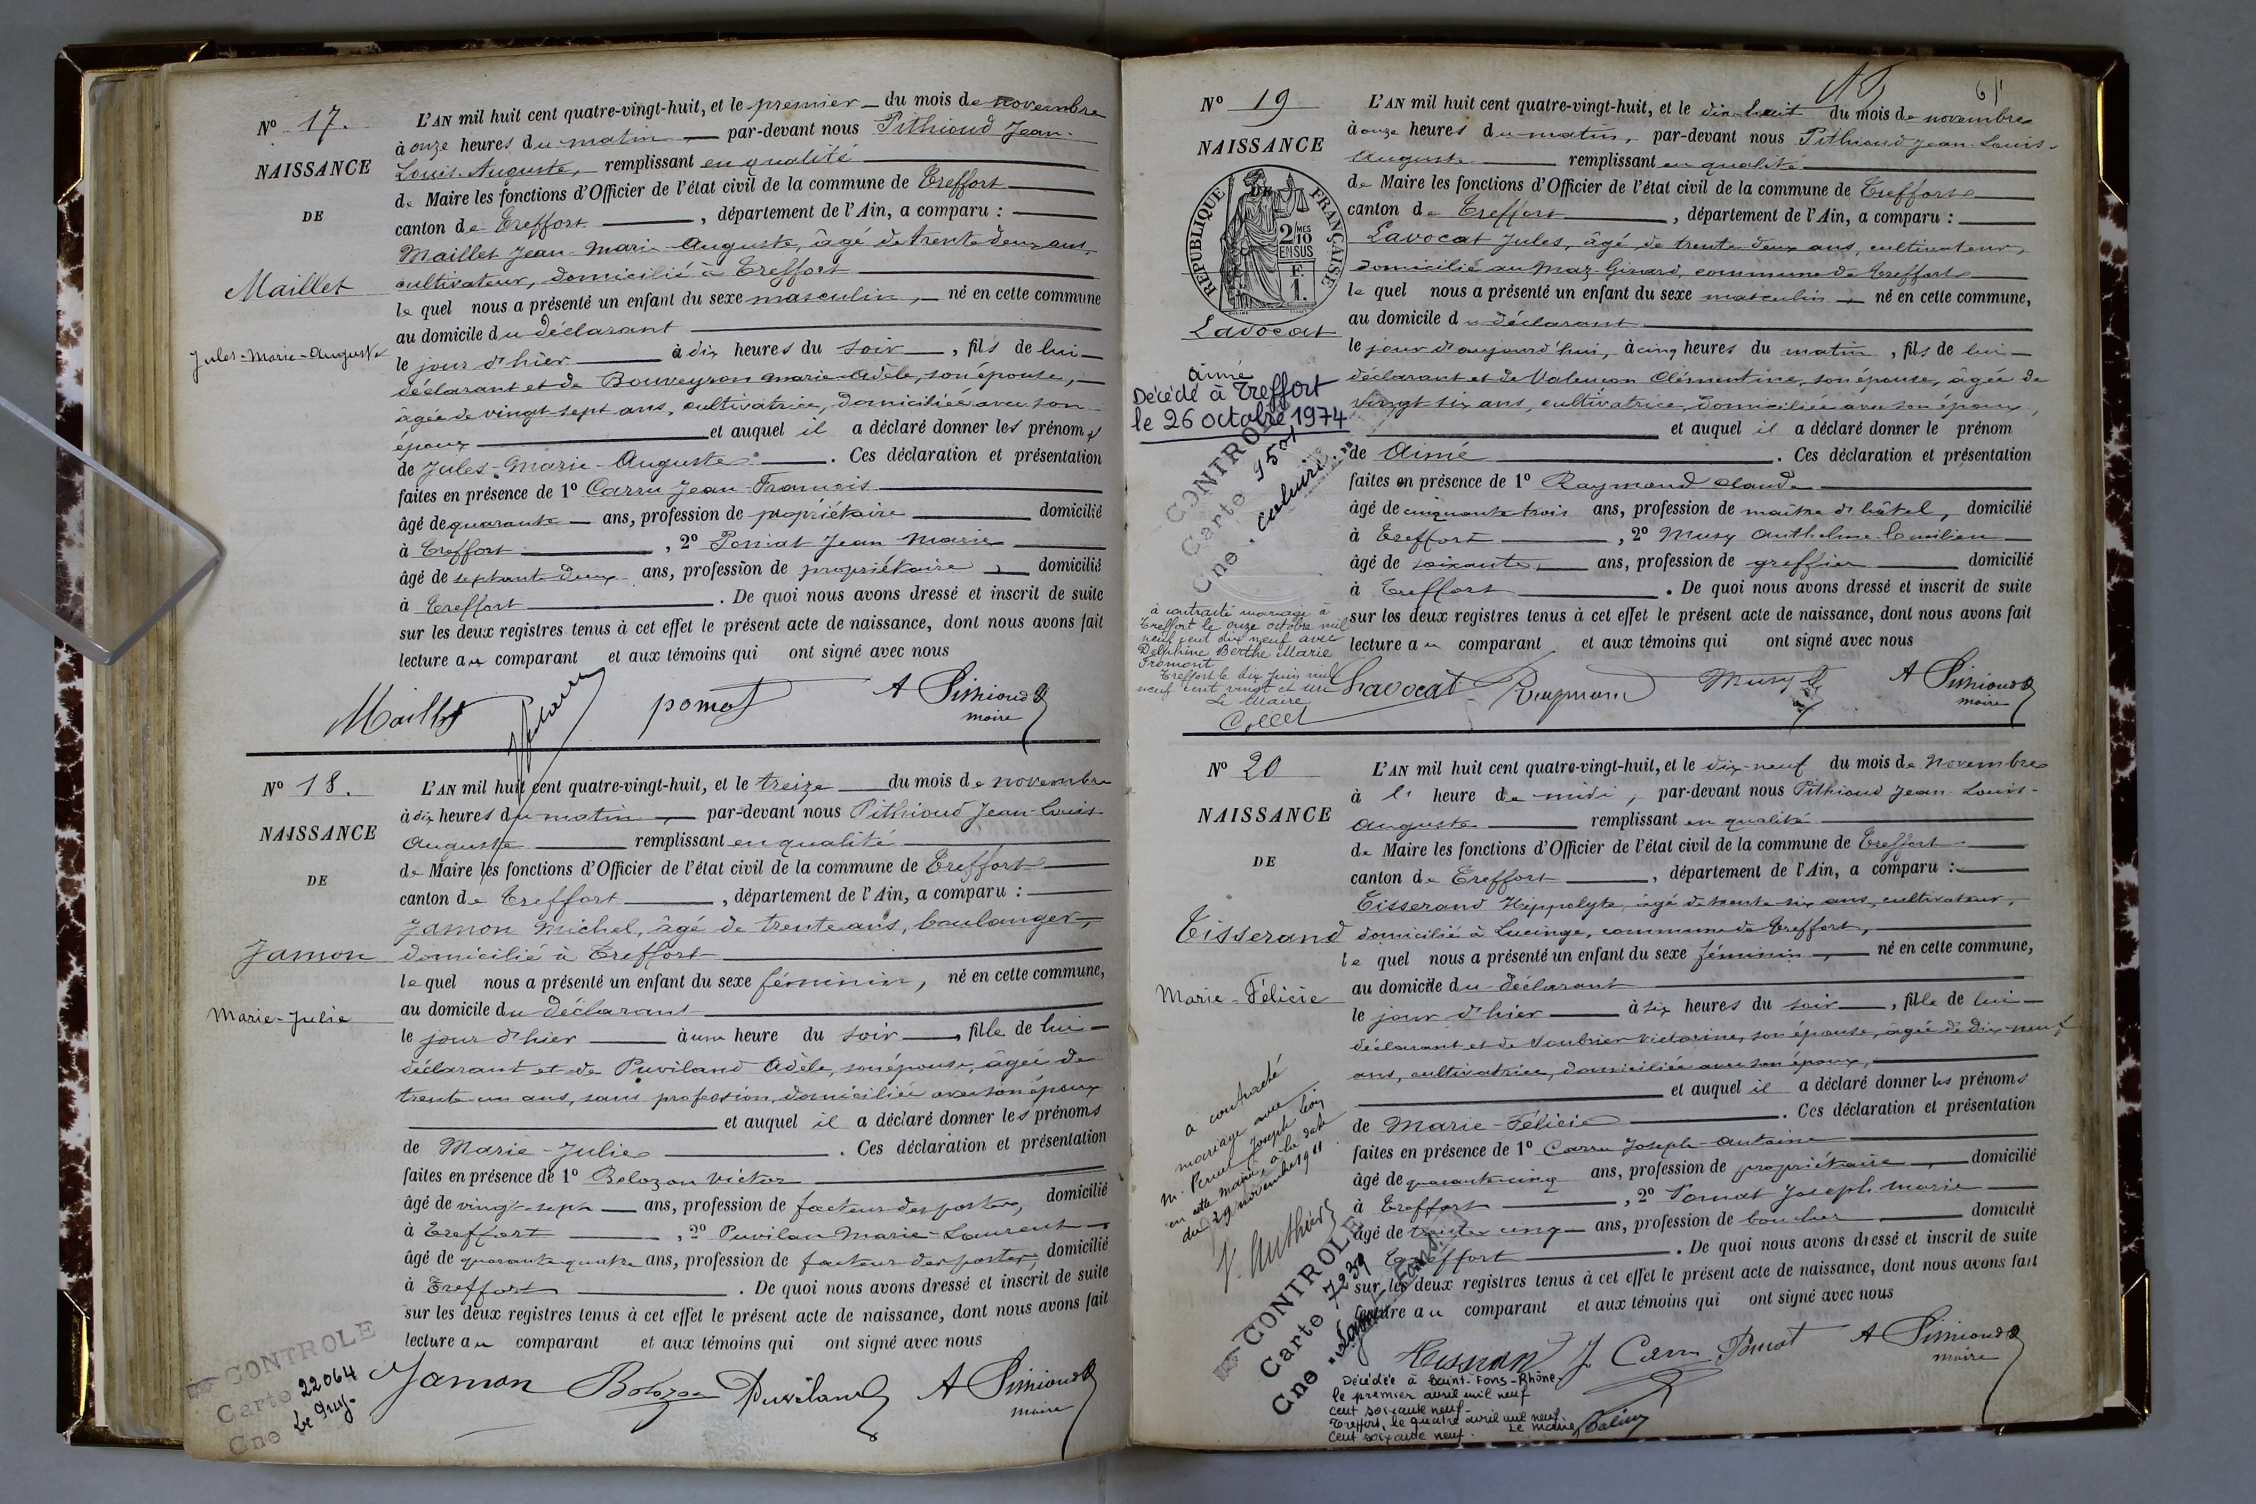 Nº 17.
NAISSANCE
DE
Maillet
Jules-Marie-Auguste
L'AN mil huit cent quatre-vingt-huit, et le premier du mois de novembre
à onze heures du matin, par-devant nous Pithioud Jean-
Louis-Auguste, remplissant en qualité
de Maire les fonctions d'Officier de l'état civil de la commune de Treffort
canton de Treffort, département de l'Ain, a comparu :
Maillet Jean-Marie-Auguste, âgé de trente deux ans,
cultivateur, domicilié à Treffort
lequel nous a présenté un enfant du sexe masculin, né en cette commune
au domicile du déclarant
le jour d'hier à dix heures du soir, fils de lui
déclarant et de Bouveyron Marie-Adèle, son épouse,
âgée de vingt-sept ans, cultivatrice, domiciliée avec son
époux et auquel il a déclaré donner les prénoms
de Jules-Marie-Auguste. Ces déclaration et présentation
faites en présence de 1º Carru Jean-François
âgé de quarante ans, profession de propriétaire domicilié
à Treffort, 2º Pomat Jean Marie
âgé de septante deux ans, profession de propriétaire, domicilié
à Treffort. De quoi nous avons dressé et inscrit de suite
sur les deux registres tenus à cet effet le présent acte de naissance, dont nous avons fait
lecture au comparant et aux témoins qui ont signé avec nous
Maillet pomat A Pithioud
maire
Nº 18.
NAISSANCE
DE
Jamon
Marie-Julie
L'AN mil huit cent quatre-vingt-huit, et le treize du mois de novembre
à dix heures du matin, par-devant nous Pithioud Jean-Louis
Auguste remplissant en qualité
de Maire les fonctions d'Officier de l'état civil de la commune de Treffort
canton de Treffort, département de l'Ain, a comparu :
Jamon Michel, âgé de trente ans, boulanger,
domicilié à Treffort
lequel nous a présenté un enfant du sexe féminin, né en cette commune,
au domicile du déclarant
le jour d'hier à une heure du soir, fille de lui
déclarant et de Puviland Adèle, son épouse, âgée de
trente un ans, sans profession, domiciliée avec son époux
et auquel il a déclaré donner les prénoms
de Marie-Julie. Ces déclaration et présentation
faites en présence de 1º Bolozon Victor
âgé de vingt-sept ans, profession de facteur des postes, domicilié
à Treffort, 2º Puvilan Marie-Laurent
âgé de quarante quatre ans, profession de facteur des postes, domicilié
à Treffort. De quoi nous avons dressé et inscrit de suite
sur les deux registres tenus à cet effet le présent acte de naissance, dont nous avons fait
lecture au comparant et aux témoins qui ont signé avec nous
Jamon Bolozon Puviland A Pithioud
maire
CONTROLE
Carte 22064
Cne Le Puy.
Nº 19
NAISSANCE
DE
RÉPUBLIQUE FRANÇAISE
2 MES
10
EN SUS
F.
1.
Lavocat
Aimé
Décédé à Treffort
le 26 octobre 1974
CONTROLE
Carte 9501
Cne caluire
à contracté mariage à
Treffort le onze octobre mil
neuf cent dix neuf avec
Delphine Berthe Marie
Fromont
Treffort le dix juin mil
neuf cent vingt et un
Le Maire
L'AN mil huit cent quatre-vingt-huit, et le dix-huit du mois de novembre
à onze heures du matin, par-devant nous Pithioud Jean-Louis-
Auguste remplissant en qualité
de Maire les fonctions d'Officier de l'état civil de la commune de Treffort
canton de Treffort, département de l'Ain, a comparu :
Lavocat Jules, âgé de trente deux ans, cultivateur,
domicilié au Maz-Girard, commune de Treffort
lequel nous a présenté un enfant du sexe masculin né en cette commune,
au domicile du déclarant
le jour d'aujourd'hui, à cinq heures du matin, fils de lui
déclarant et de Valençon Clémentine, son épouse, âgée de
vingt six ans, cultivatrice, domiciliée avec son époux,
et auquel il a déclaré donner le prénom
de Aimé. Ces déclaration et présentation
faites en présence de 1º Raymond Claude
âgé de cinquante trois ans, profession de maître d'hôtel, domicilié
à Treffort, 2º Musy Anthelme-Emilien
âgé de soixante, ans, profession de greffier domicilié
à Treffort. De quoi nous avons dressé et inscrit de suite
sur les deux registres tenus à cet effet le présent acte de naissance, dont nous avons fait
lecture au comparant et aux témoins qui ont signé avec nous
Lavocat Raymond Musy A Pithioud
maire
Nº 20
NAISSANCE
DE
Tisserand
Marie-Félicie
a contracté
mariage avec
M. Perret Joseph Léon
en cette mairie, à la date
du 29 novembre 1911
CONTROLE
Carte 7239
Cne Saint Fons
L'AN mil huit cent quatre-vingt-huit, et le dix-neuf du mois de Novembre
à l' heure de midi, par-devant nous Pithioud Jean-Louis-
Auguste remplissant en qualité
de Maire les fonctions d'Officier de l'état civil de la commune de Treffort
canton de Treffort, département de l'Ain, a comparu :
Tisserand Hippolyte, âgé de trente six ans, cultivateur,
domicilié à Lucinge, commune de Treffort,
lequel nous a présenté un enfant du sexe féminin, né en cette commune,
au domicile du déclarant
le jour d'hier à six heures du soir, fille de lui
déclarant et de Saubrier Victorine, son épouse, âgée de dix-neuf
ans, cultivatrice, domiciliée avec son époux,
et auquel il a déclaré donner les prénoms
de Marie-Félicie. Ces déclaration et présentation
faites en présence de 1º Carru Joseph-Antoine
âgé de quarante cinq ans, profession de propriétaire, domicilié
à Treffort, 2º Pomat Joseph Marie
âgé de trente cinq ans, profession de boucher domicilié
à Treffort. De quoi nous avons dressé et inscrit de suite
sur les deux registres tenus à cet effet le présent acte de naissance, dont nous avons fait
lecture au comparant et aux témoins qui ont signé avec nous
J Carru Pomat A Pithioud
maire
Décédée à Saint-Fons-Rhône-
le premier avril mil neuf
cent soixante neuf.
Treffort, le quatre avril mil neuf
cent soixante neuf. Le Maire,